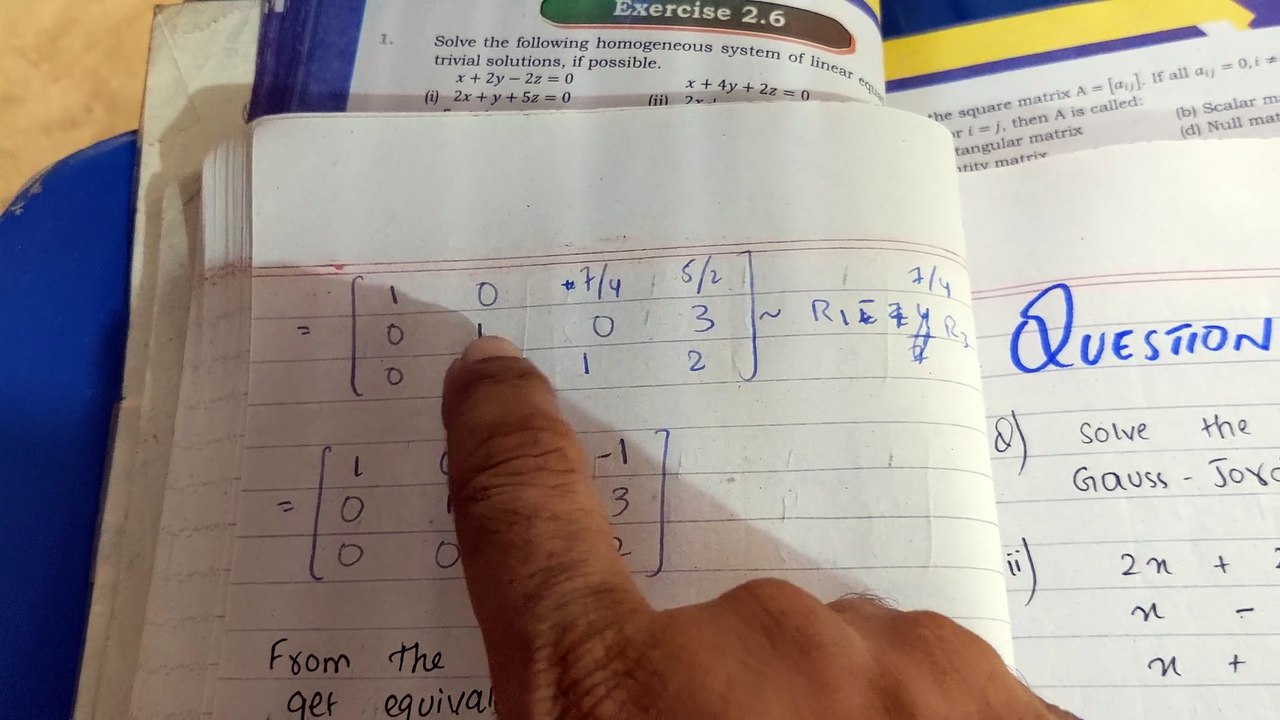 Exercise 2.6
1. Solve the following homogeneous system of linear equa
trivial solutions, if possible.
x + 2y − 2z = 0
x + 4y + 2z = 0
(i) 2x + y + 5z = 0
(ii)
the square matrix A = [aij]. If all aij = 0, i ≠
or i = j, then A is called:
(b) Scalar m
tangular matrix
(d) Null mat
ntity matrix
1 0 7/4 5/2 7/4
= 0 1 0 3 ~ R1 R3
0 1 2
1 -1
= 0 1 3
0 0 2
From the
get equival
QUESTION
Q) Solve the
Gauss - Jord
ii) 2x +
x -
x +